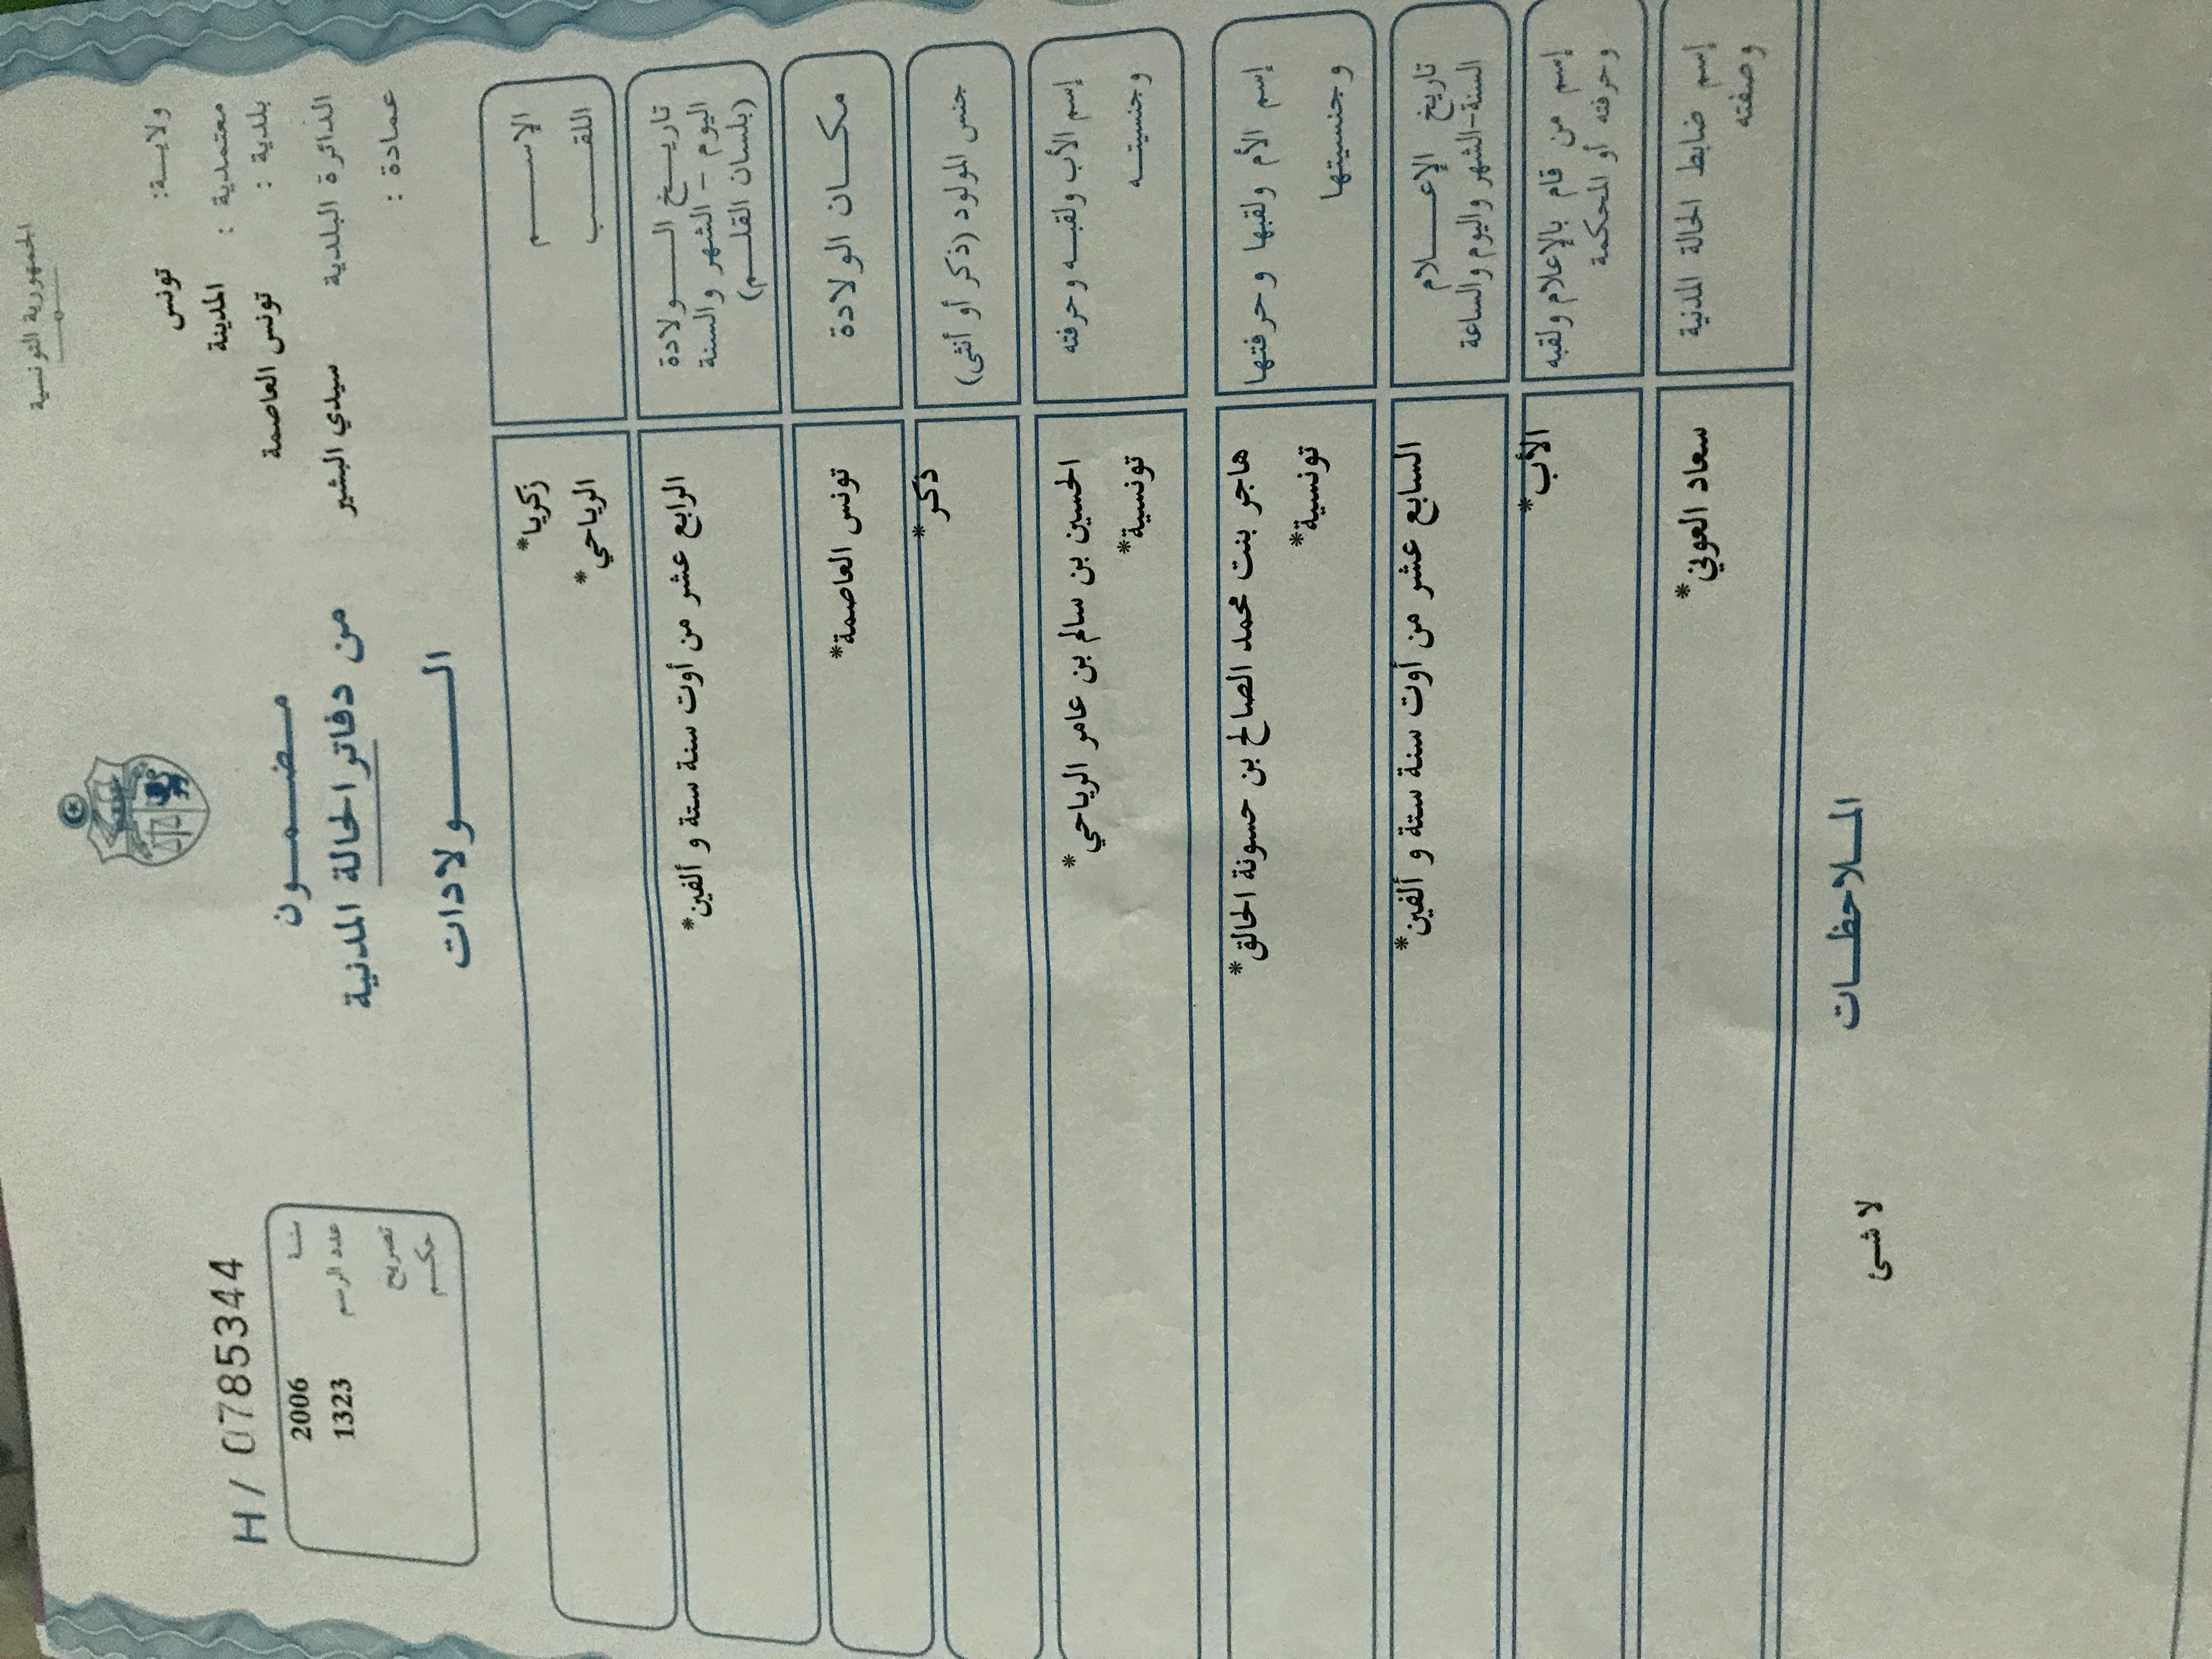 الجمهورية التونسية
ولايـــة: تونس
معتمدية : المدينة
بلدية : تونس العاصمة
الدائرة البلدية سيدي البشير
عمادة :
مـضـمـــون
من دفاتر الحالة المدنية
الـــــولادات
H / 0785344
سنة 2006
عدد الرسم 1323
تصريح
حكـــم
الإســـــم زكريا*
اللقـــــب الرياحي*
تاريـــخ الـــــولادة
اليوم - الشهر والسنة
(بلسان القلـــم)
الرابع عشر من أوت سنة ستة و ألفين*
مكـــان الولادة تونس العاصمة*
جنس المولود (ذكر أو أنثى) ذكر*
إسم الأب ولقبـــه وحرفته الحسين بن سالم بن عامر الرياحي*
وجنسيتـــه تونسية*
إسم الأم ولقبها وحرفتها هاجر بنت محمد الصالح بن حسونة الحالق*
وجنسيتها تونسية*
تاريخ الإعـــــلام
السنة-الشهر واليوم والساعة
السابع عشر من أوت سنة ستة و ألفين*
إسم من قام بالإعلام ولقبه
وحرفته أو المحكمة
الأب*
إسم ضابط الحالة المدنية
وصفته
سعاد العوني*
المـــلاحظـــات
لا شـــئ